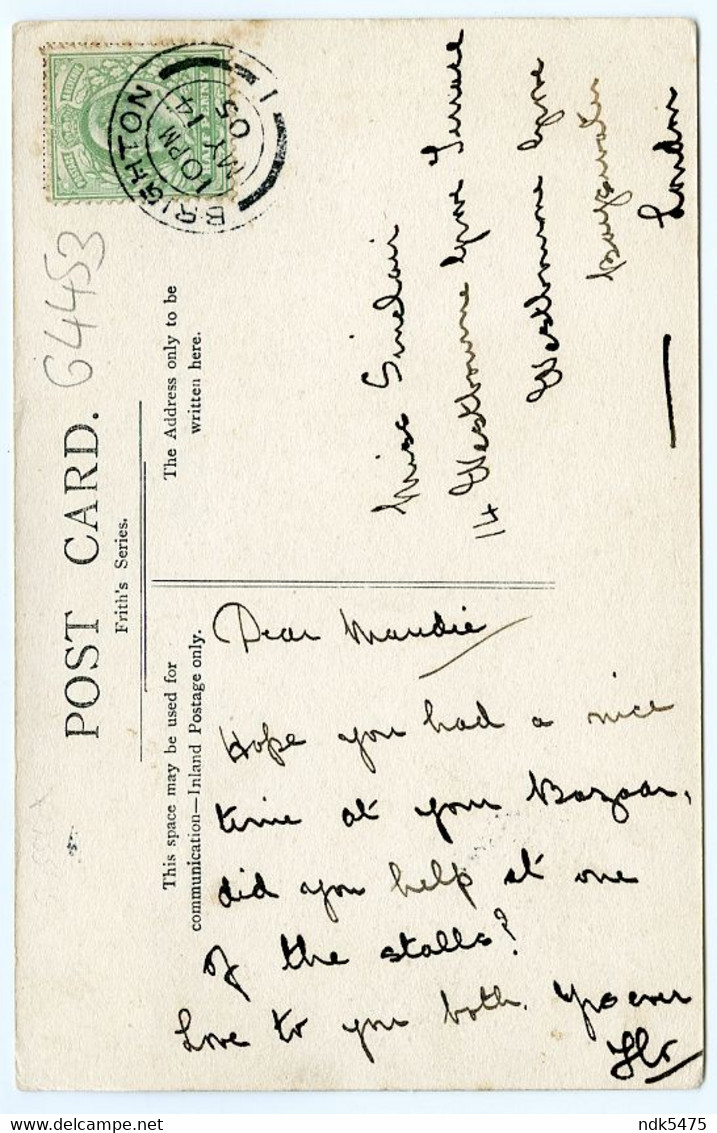 POST CARD.
Frith's Series.
64453
This space may be used for
communication—Inland Postage only.
The Address only to be
written here.
BRIGHTON
10 PM
MY 14
05
1
Dear Maudie
Hope you had a nice
time at your Bazaar,
did you help at one
of the stalls?
Love to you both. Yrs ever
Flo
Miss Sinclair
14 Westbourne Grove Terrace
Westbourne Grove
Bayswater
London
ndk5475